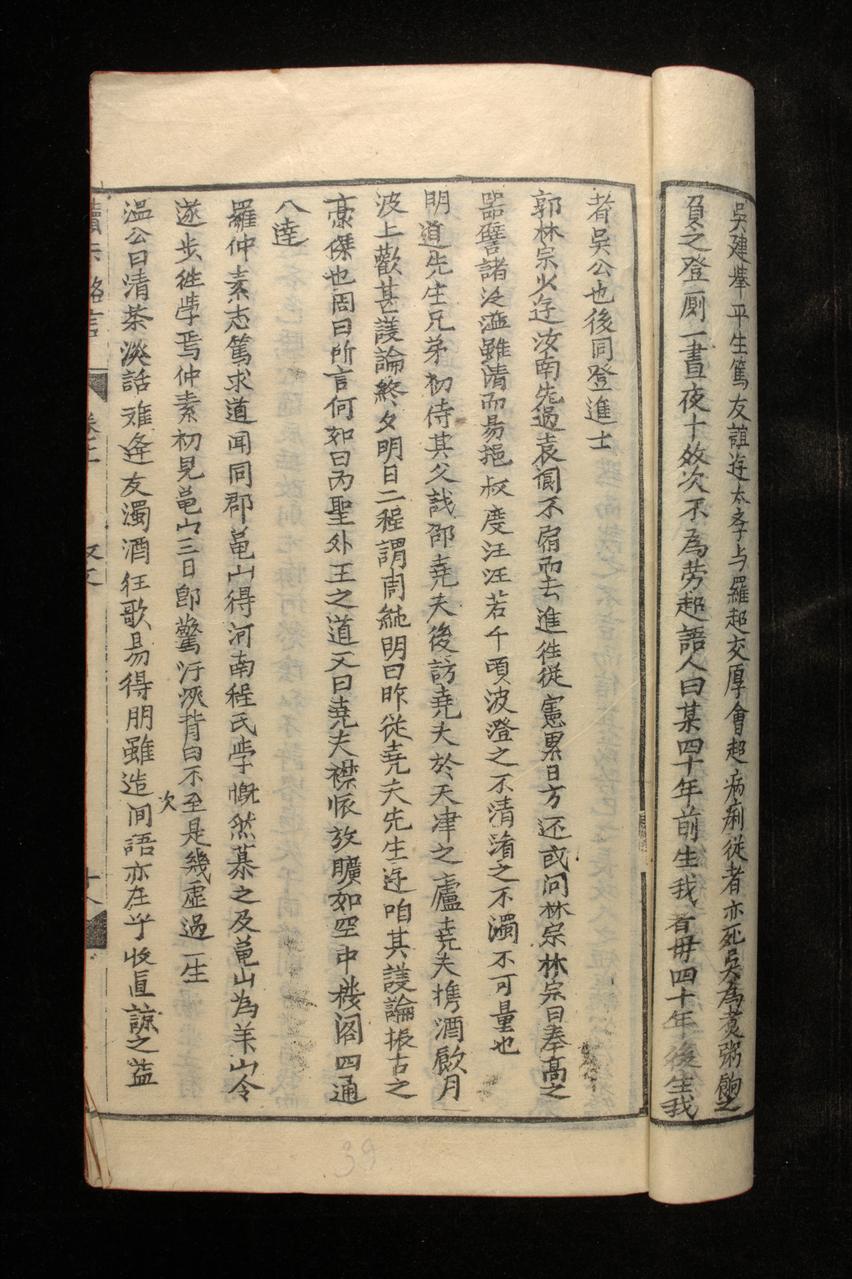 吳建舉平生篤友誼遊太孝与羅超交厚會超病痢從者亦死吳為煮粥餉之
負之登厠一晝夜十数次不為劳超語人曰某四十年前生我者毋四十年後生我
者吳公也後同登進士
郭林宗少遊汝南先過袁閬不宿而去進徃從憲累日方还或问林宗林宗曰奉髙之
器譬諸泛灆雖清而易挹叔度汪汪若千頃波澄之不清淆之不濁不可量也
明道先生兄弟初侍其父識邵堯夫後訪堯夫於天津之廬堯夫携酒飮月
波上歡甚議論終夕明日二程謂周純明曰昨從堯夫先生遊咱其議論振古之
豪傑也周曰所言何如曰内聖外王之道又曰堯夫襟懐放曠如空中楼阁四通
八達
羅仲素志篤求道闻同郡龜山得河南程氏学慨然慕之及龜山為羊山令
遂步徃学焉仲素初見龜山三日即驚汗浹背曰不至是幾虛過一生
次
温公曰清茶淡話难逢友濁酒狂歌易得朋雖造间語亦在乎收直諒之益
卷二
十八
39